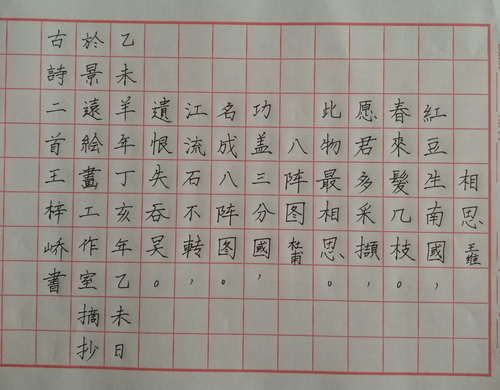 相思 王維
紅豆生南國，
春來髮几枝。
愿君多采擷，
此物最相思。
八阵图 杜甫
功盖三分國，
名成八阵图
江流石不轉，
遺恨失吞吴。
乙未羊年丁亥年乙未日
於景遠繪畫工作室摘抄
古詩二首王梓嶠書